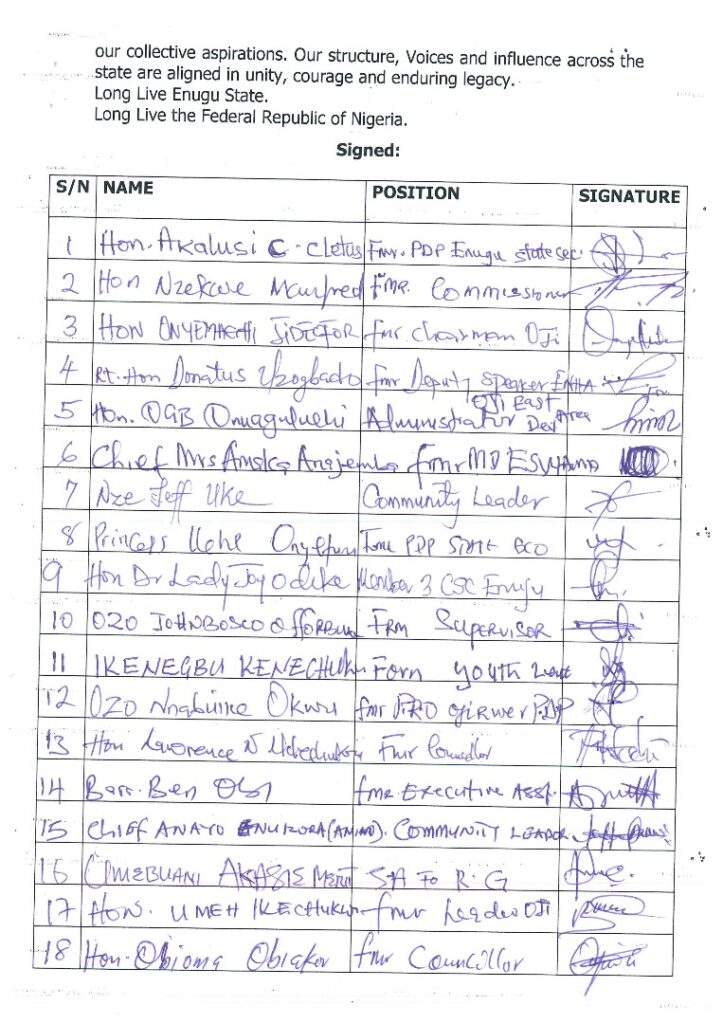 our collective aspirations. Our structure, Voices and influence across the
state are aligned in unity, courage and enduring legacy.
Long Live Enugu State.
Long Live the Federal Republic of Nigeria.
Signed:
S/N NAME POSITION SIGNATURE
1 Hon. Akalusi C. Cletus Fmr. PDP Enugu state sec.
2 Hon Nzekwe Manfred Fmr. Commissioner
3 HON ONYEMAECHI JIDEOFOR fmr Chairman OJI
4 Rt. Hon Donatus Uzogbado fmr Deputy Speaker ENHA
5 Hon. OGB Onuaguluchi Administrator OJI East Dev Area
6 Chief Mrs Amaka Anajemba fmr MD
7 Nze Jeff Uke Community Leader
8 Princess Uche PDP State
9 Hon Dr Lady Joy Odike Member 3 CSC Enugu
10 OZO JOHNBOSCO FRM SUPERVISOR
11 IKENEGBU KENECHUKWU Form youth
12 OZO Okwu fmr PRO PDP
13 Hon Lawrence N Fmr Councillor
14 Barr. Ben Obi fmr Executive Asst.
15 CHIEF ANAYO COMMUNITY LEADER
16 SA TO
17 HON. UMEH IKECHUKWU fmr Leader OJI
18 Hon. Obioma fmr Councillor